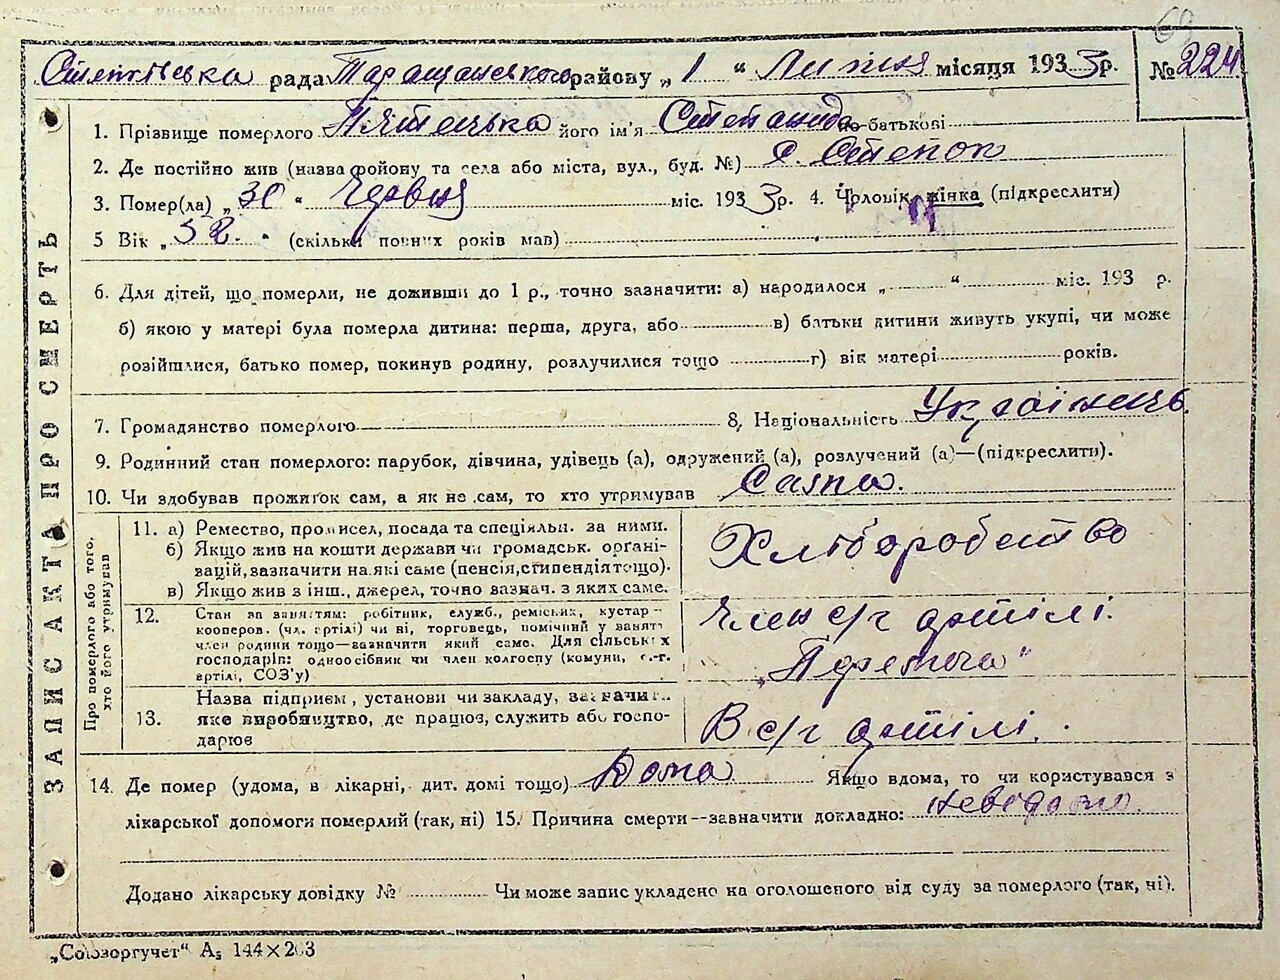 69
Степківська рада Таращанського району „1 “ Липня місяця 1933р. №224
ЗАПИС АКТА ПРО СМЕРТЬ
1. Прізвище померлого його ім'я Степанида по-батькові
2. Де постійно жив (назва району та села або міста, вул., буд. №) с. Степок
3. Помер(ла) „30 “ Червня міс. 1933р. 4. Чоловік жінка (підкреслити)
5 Вік „52. “ (скільки повних років мав)
6. Для дітей, що померли, не доживши до 1 р., точно зазначити: а) народилося „ “ міс. 193 р.
б) якою у матері була померла дитина: перша, друга, або в) батьки дитини живуть укупі, чи може
розійшлися, батько помер, покинув родину, розлучилися тощо г) вік матері років.
7. Громадянство померлого 8, Національність Українець.
9. Родинний стан померлого: парубок, дівчина, удівець (а), одружений (а), розлучений (а)—(підкреслити).
10. Чи здобував прожиток сам, а як не сам, то хто утримував Сама.
Про померлого або того,
хто його утримував
11. а) Ремество, промисел, посада та спеціяльн. за ними.
б) Якщо жив на кошти держави чи громадськ. орґані-
вацій, зазначити на які саме (пенсія, стипендія тощо).
в) Якщо жив з інш., джерел, точно зазнач. з яких саме.
Хліборобство
12. Стан за заняттям: робітник, служб., реміськх, кустар-
кооперов. (чл. артілі) чи ні, торговець, помічний у занят.
член родини тощо—зазначити який саме. Для сільських
господарів: одноосібник чи член колгоспу (комуни, с.-г.
артілі, СОЗ'у)
Член с/г артілі.
13. Назва підприєм, установи чи закладу, зазначити
яке виробництво, де працює, служить або госпо-
дарює
В с/г артілі.
14. Де помер (удома, в лікарні, дит. домі тощо) Дома. Якщо вдома, то чи користувався з
лікарської допомоги померлий (так, ні) 15. Причина смерти--зазначити докладно: невідомо.
Додано лікарську довідку № Чи може запис укладено на оголошеного від суду за померлого (так, ні).
„Союзоргучет“ А₅ 144×203